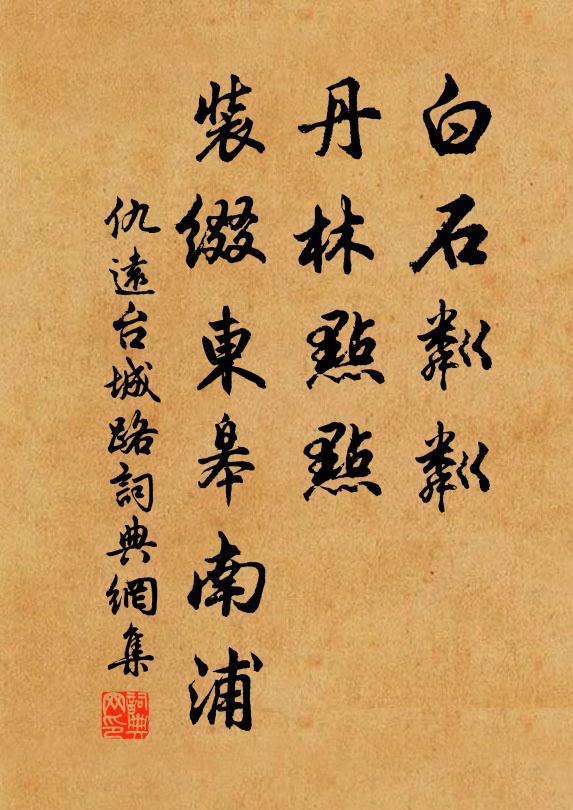 白石粼粼
丹林點點
裝綴東皋南浦
仇遠台城路詞典網集
詞典网印